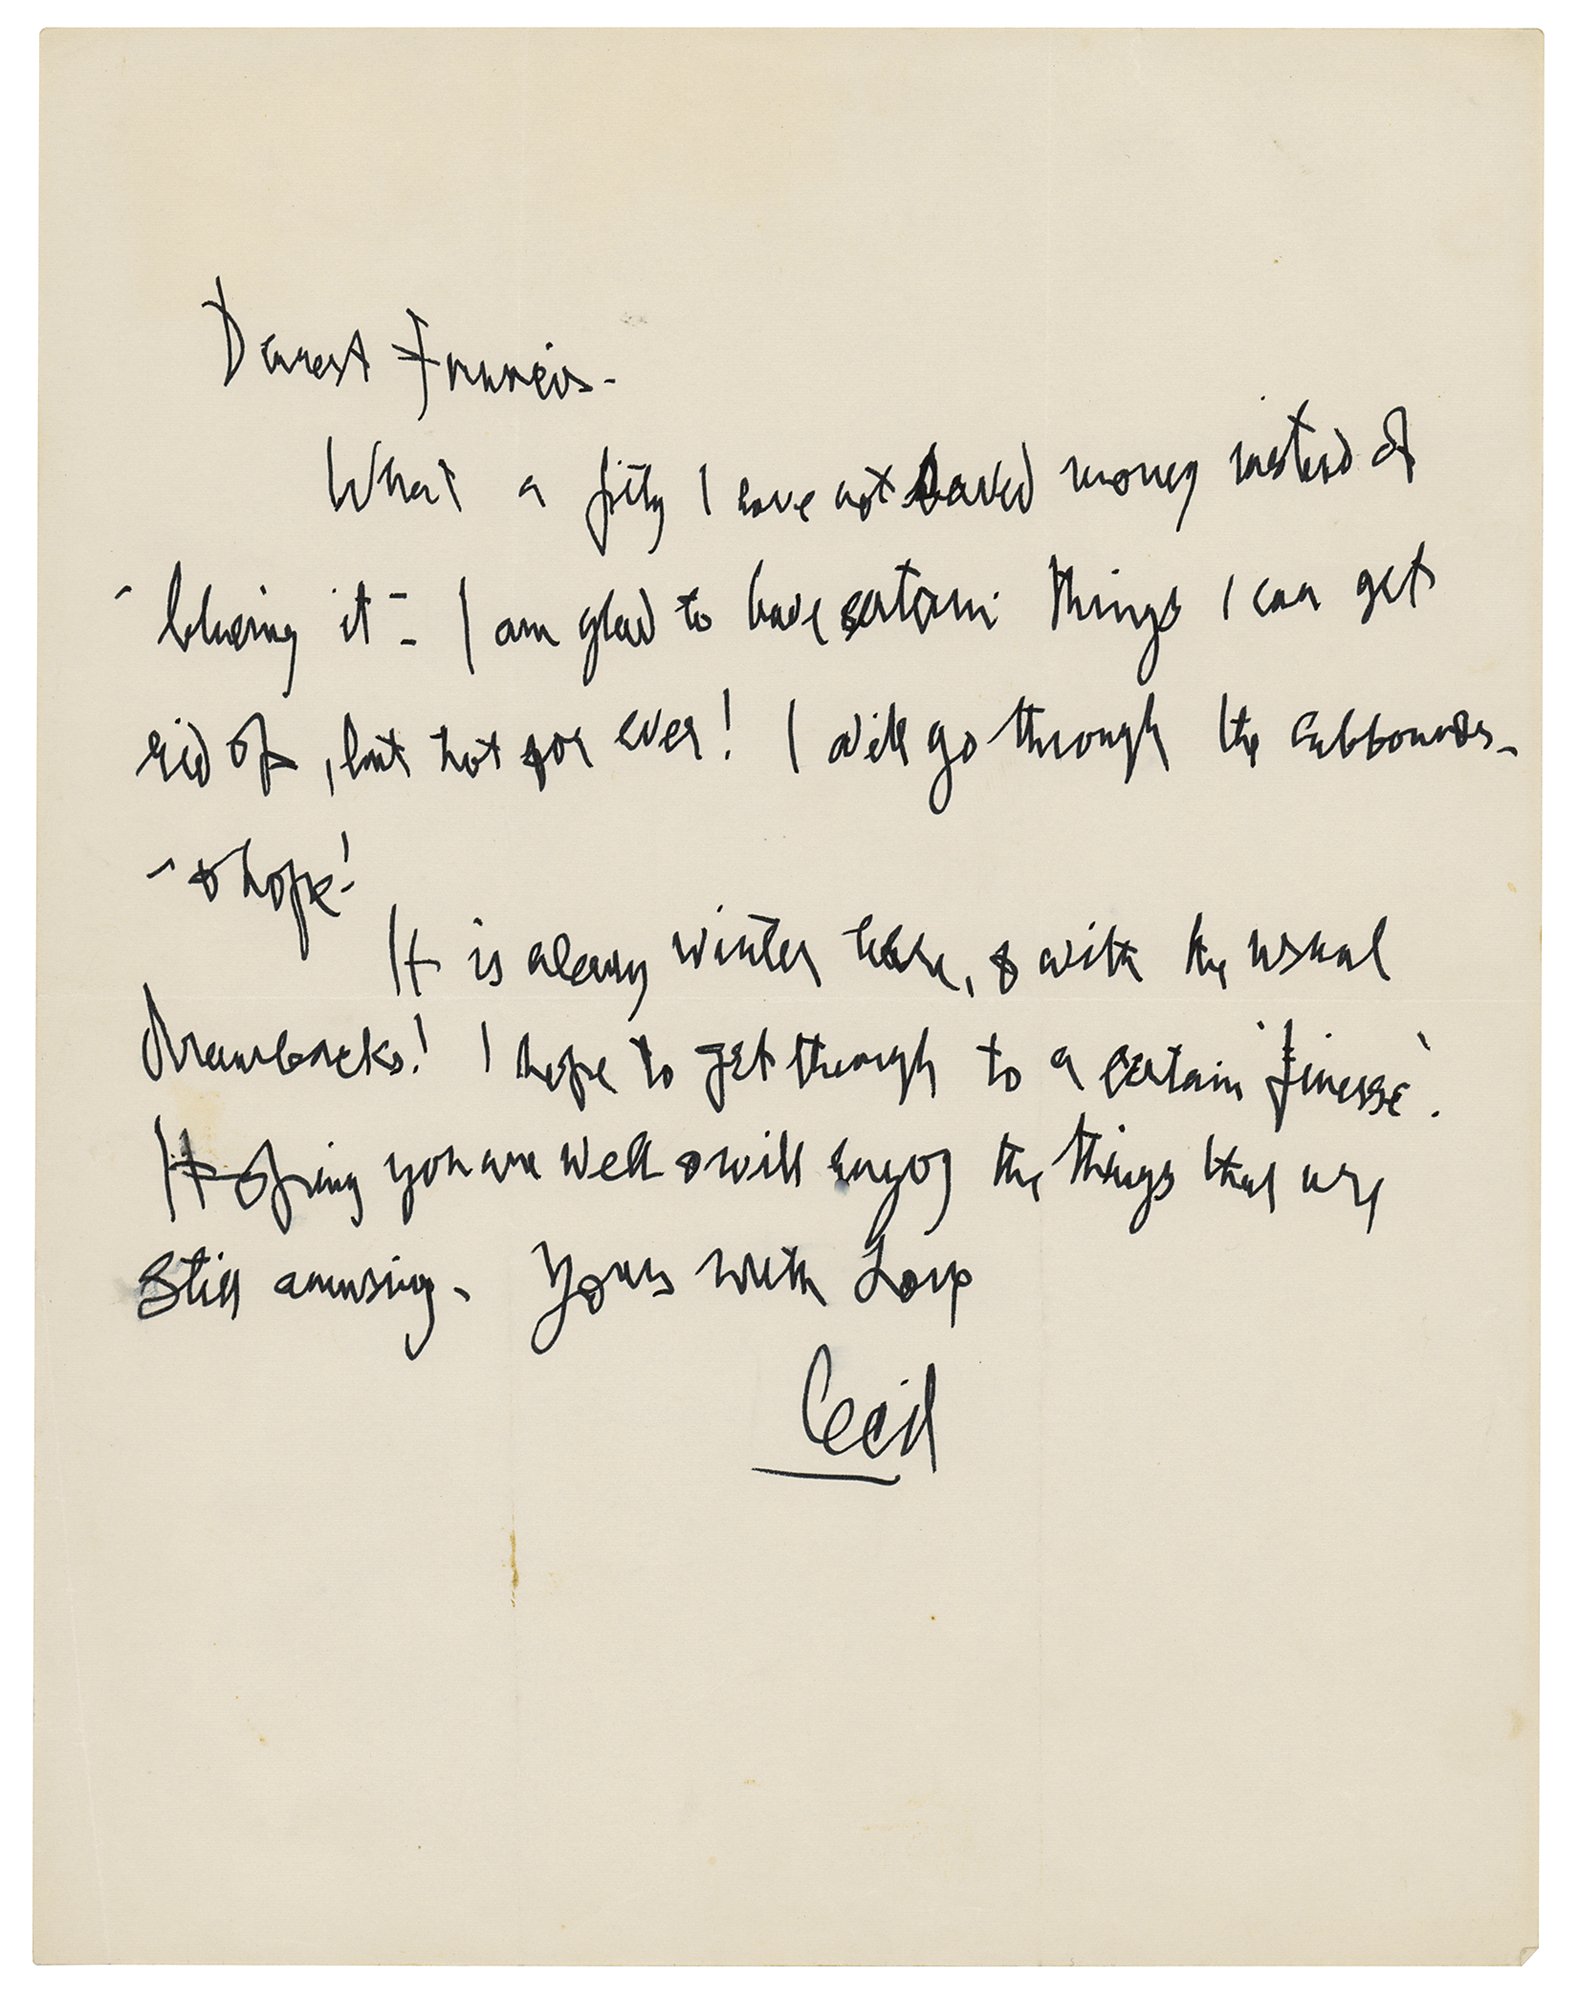 Dearest Francis -
What a pity I have not saved money instead of
"blueing it" - I am glad to have certain things I can get
rid of, but not for ever! I will go through the cubboards -
- & hope!
It is already winter here, & with the usual
Drawbacks! I hope to get through to a certain 'finesse'.
Hoping you are well & will enjoy the things that are
still amusing. Yours with Love
Cecil